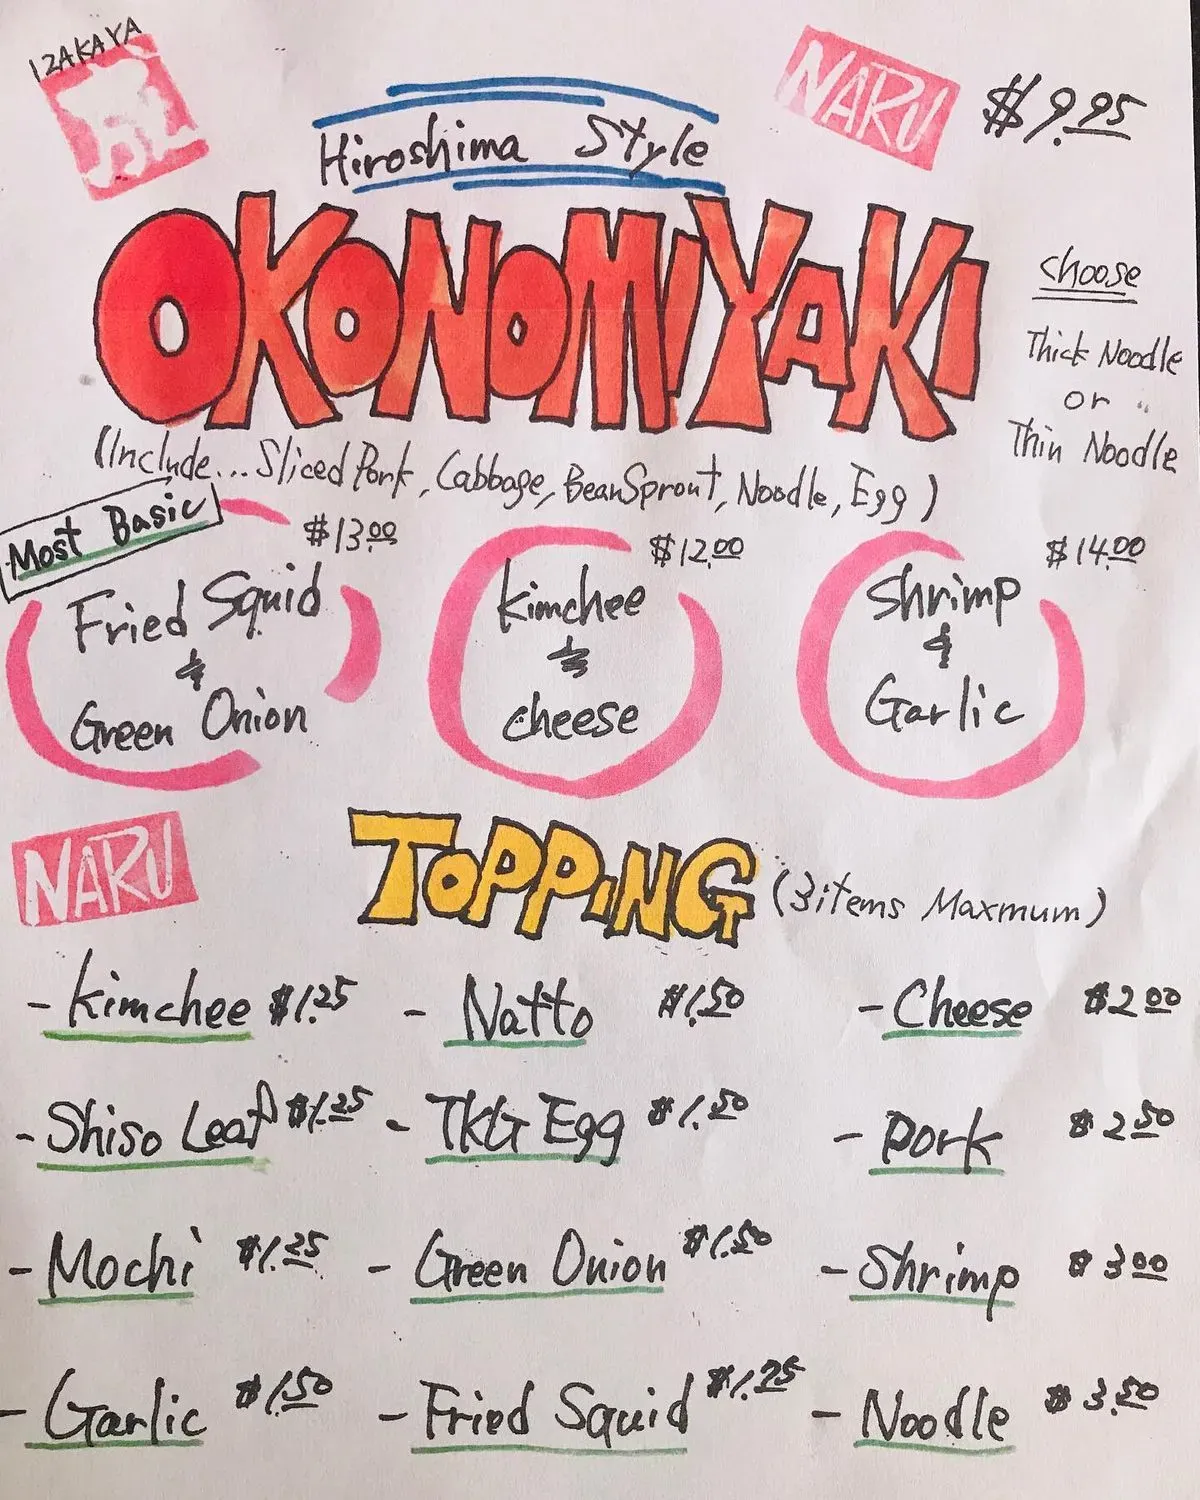 IZAKAYA
NARU
$9.95
Hiroshima Style
OKONOMIYAKI
choose
Thick Noodle
or
Thin Noodle
(Include... Sliced Pork, Cabbage, BeanSprout, Noodle, Egg)
Most Basic
$13.00
Fried Squid
&
Green Onion
$12.00
kimchee
&
cheese
$14.00
Shrimp
&
Garlic
NARU
TOPPING (3items Maxmum)
- kimchee $1.25
- Natto $1.50
- Cheese $2.00
- Shiso Leaf $1.25
- TKG Egg $1.50
- Pork $2.50
- Mochi $1.25
- Green Onion $1.50
- Shrimp $3.00
- Garlic $1.50
- Fried Squid $1.75
- Noodle $3.50